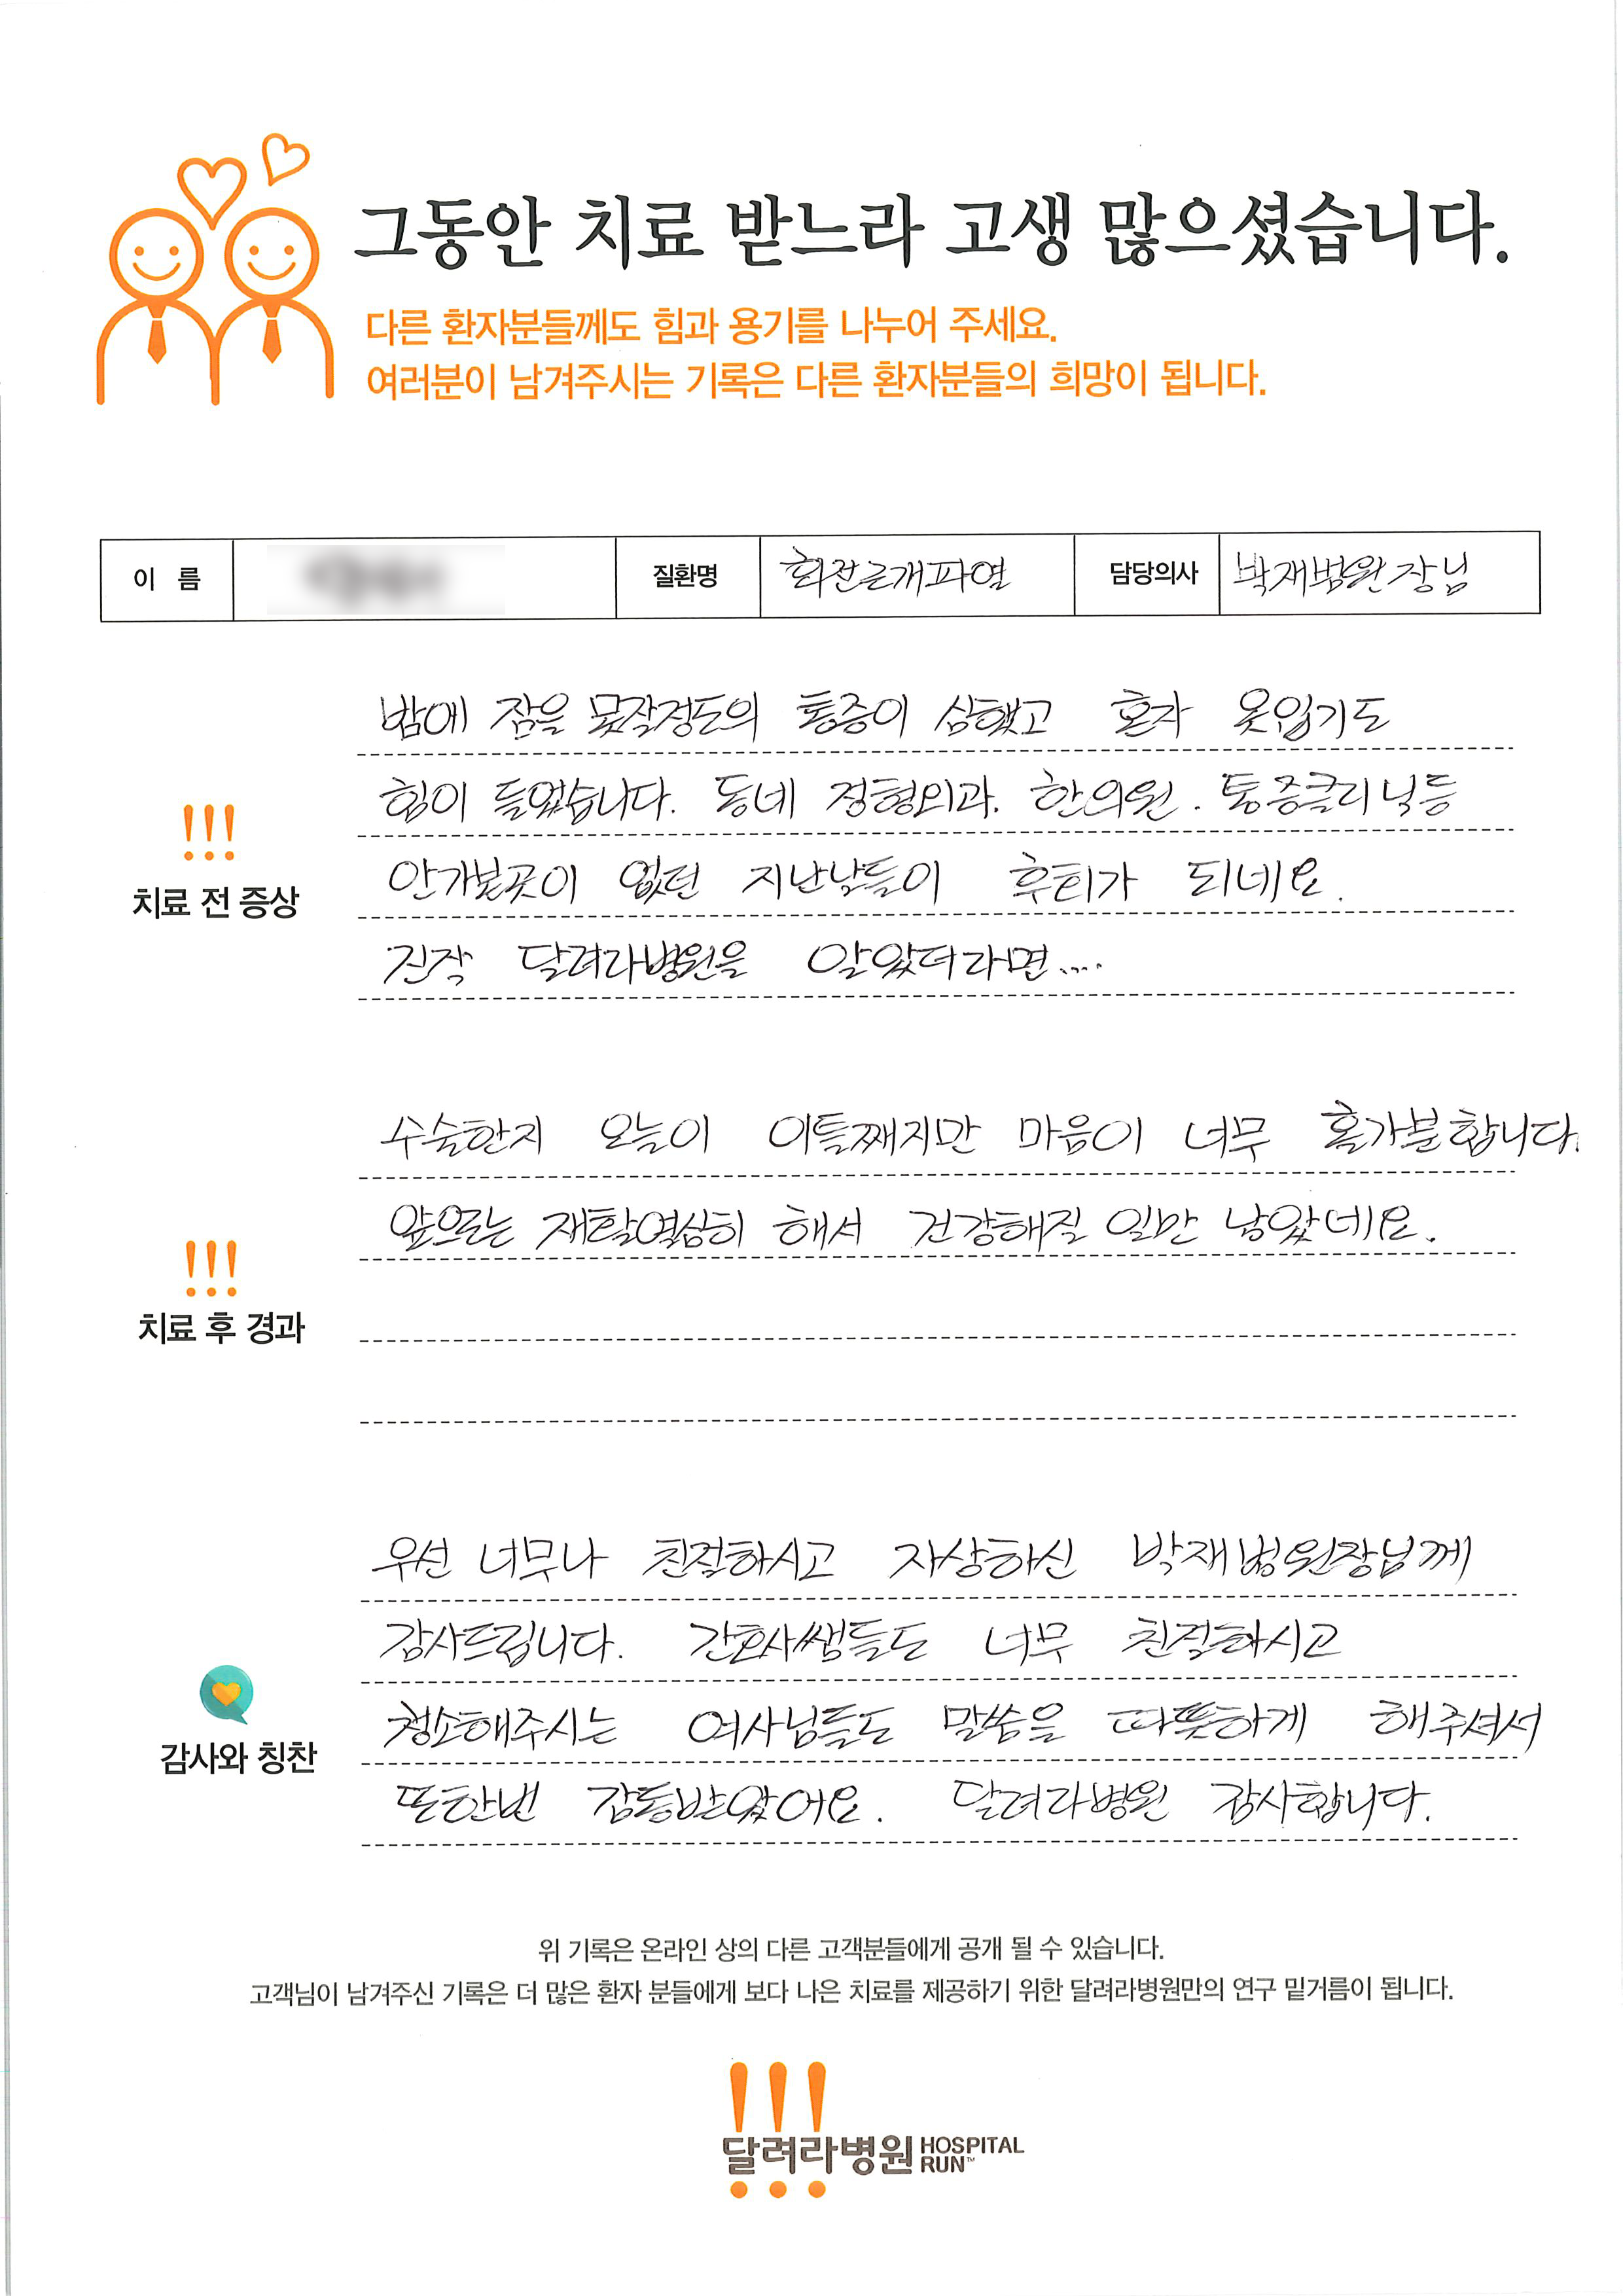 그동안 치료 받느라 고생 많으셨습니다.
다른 환자분들께도 힘과 용기를 나누어 주세요.
여러분이 남겨주시는 기록은 다른 환자분들의 희망이 됩니다.
이 름 질환명 회전근개파열 담당의사 박재범원장님
밤에 잠을 못잘정도의 통증이 심했고 혼자 옷입기도
힘이 들었습니다. 동네 정형외과. 한의원. 통증클리닉등
안가본곳이 없던 지난날들이 후회가 되네요.
진작 달려라병원을 알았더라면....
!!!
치료 전 증상
수술한지 오늘이 이틀째지만 마음이 너무 홀가분합니다.
앞으로는 재활열심히 해서 건강해질 일만 남았네요.
!!!
치료 후 경과
우선 너무나 친절하시고 자상하신 박재범원장님께
감사드립니다. 간호사쌤들도 너무 친절하시고
청소해주시는 여사님들도 말씀을 따뜻하게 해주셔서
또한번 감동받았어요. 달려라병원 감사합니다.
감사와 칭찬
위 기록은 온라인 상의 다른 고객분들에게 공개 될 수 있습니다.
고객님이 남겨주신 기록은 더 많은 환자 분들에게 보다 나은 치료를 제공하기 위한 달려라병원만의 연구 밑거름이 됩니다.
달려라병원 HOSPITAL RUN™